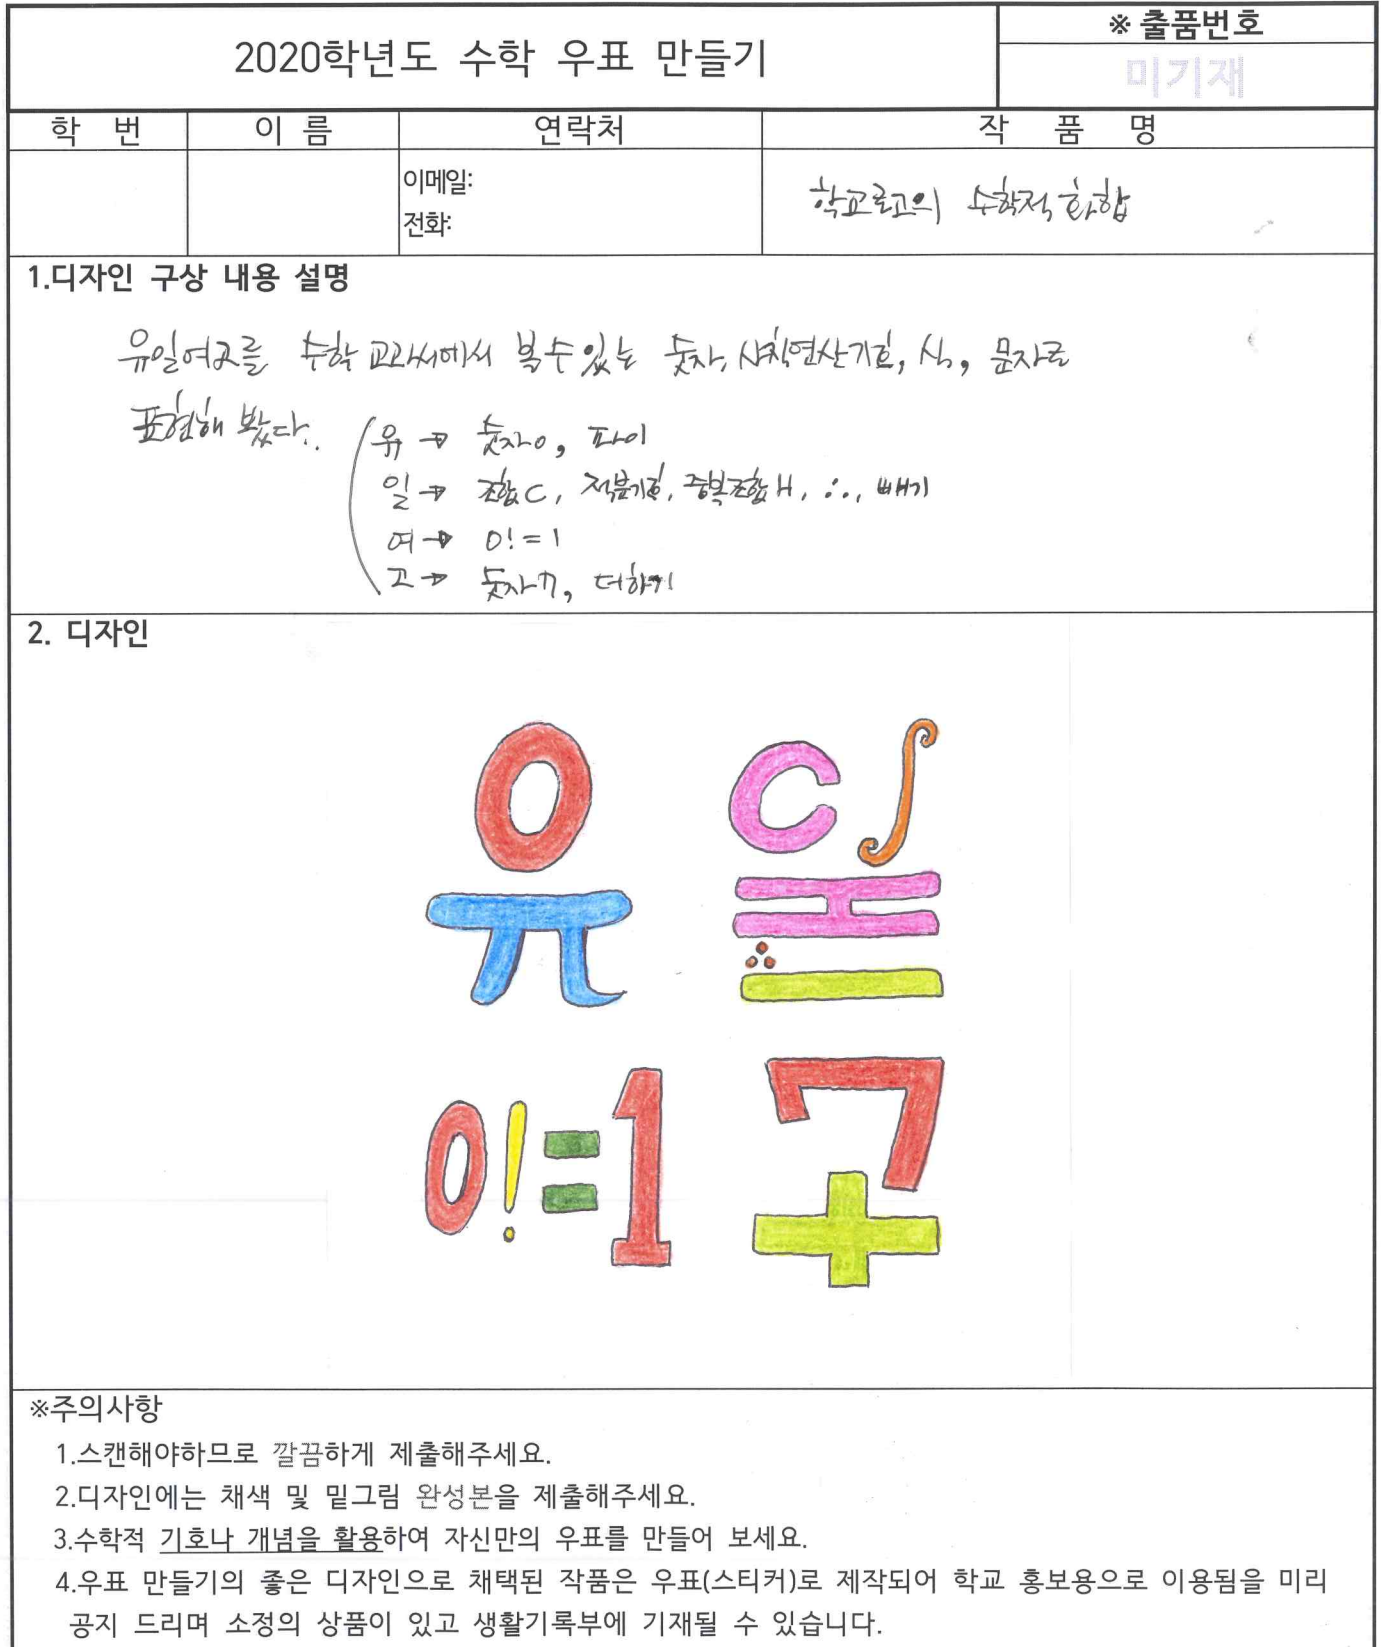 2020학년도 수학 우표 만들기
※ 출품번호
미기재
학 번 이 름 연락처 작 품 명
이메일:
전화:
학교로고의 수학적 화합
1.디자인 구상 내용 설명
유일여고를 수학 교과서에서 볼 수 있는 숫자, 사칙연산기호, 식, 문자로
표현해 봤다.
유 → 숫자0, 파이
일 → 조합 C, 적분기호, 중복조합 H, ∴, 빼기
여 → 0! = 1
고 → 숫자 7, 더하기
2. 디자인
0 C ∫
π H
∴ −
0!=1 7
+
※주의사항
1.스캔해야하므로 깔끔하게 제출해주세요.
2.디자인에는 채색 및 밑그림 완성본을 제출해주세요.
3.수학적 기호나 개념을 활용하여 자신만의 우표를 만들어 보세요.
4.우표 만들기의 좋은 디자인으로 채택된 작품은 우표(스티커)로 제작되어 학교 홍보용으로 이용됨을 미리
공지 드리며 소정의 상품이 있고 생활기록부에 기재될 수 있습니다.